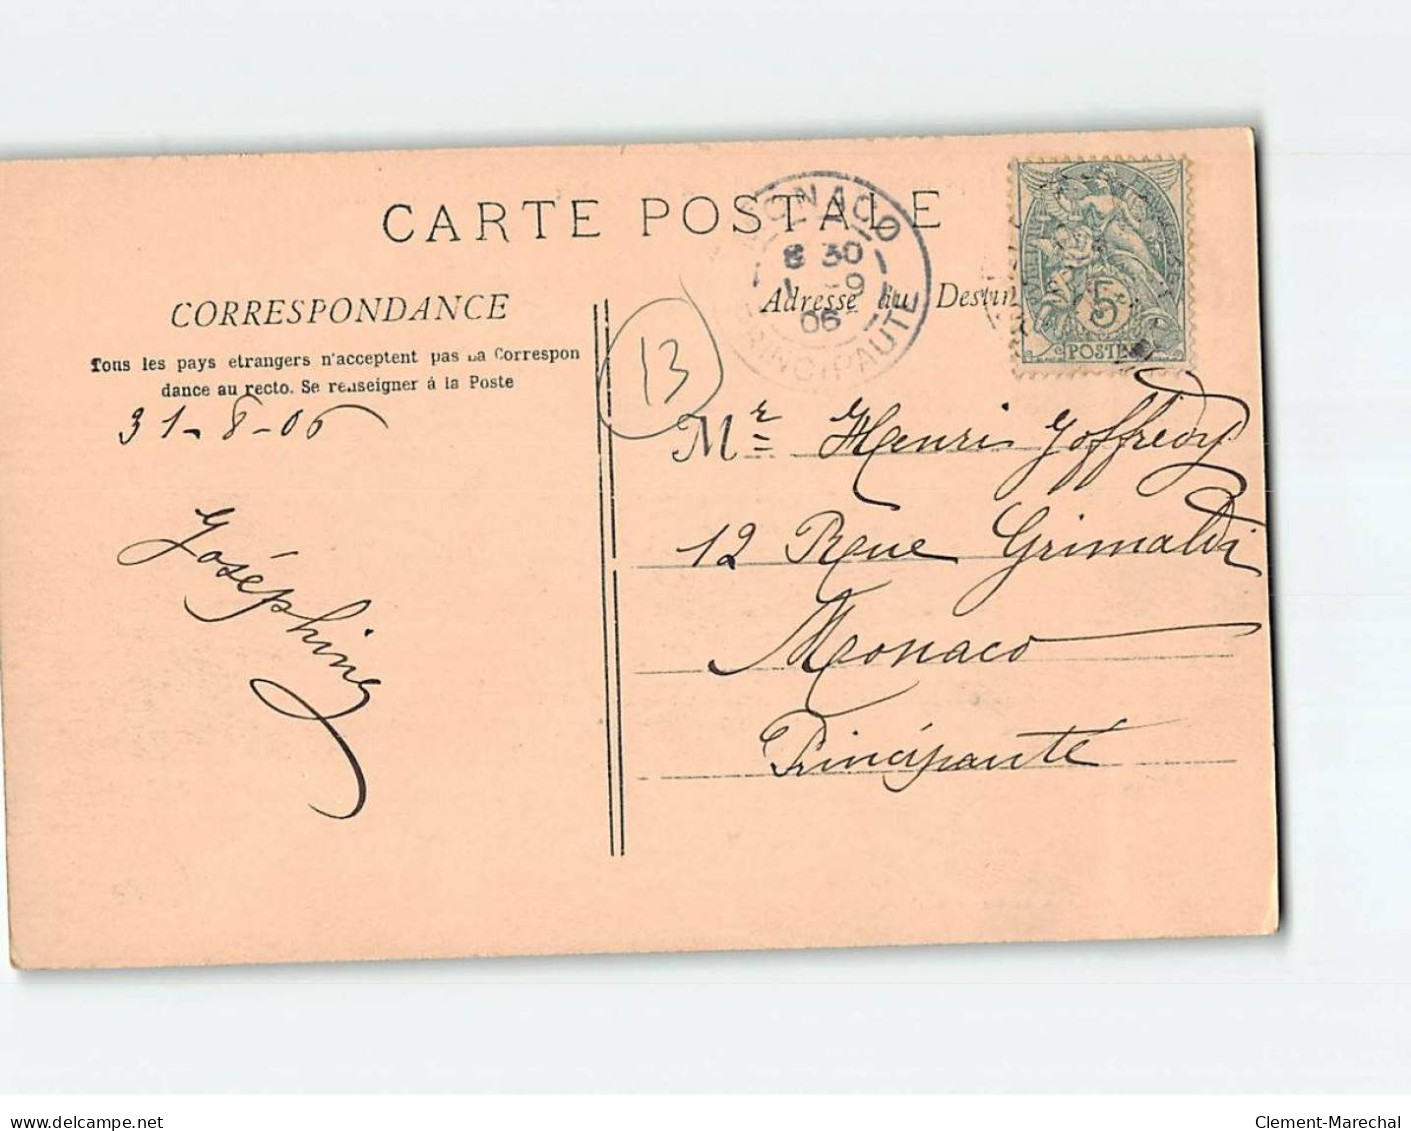 CARTE POSTALE
MONACO
8 30
1 -9
06
PRINCIPAUTÉ
5c
POSTES
CORRESPONDANCE
Tous les pays etrangers n'acceptent pas La Correspon
dance au recto. Se renseigner à la Poste
Adresse du Destin
13
31-8-06
Joséphine
Mr Henri Joffredy
12 Rue Grimaldi
Monaco
Principauté
delcampe.net
Clement-Marechal